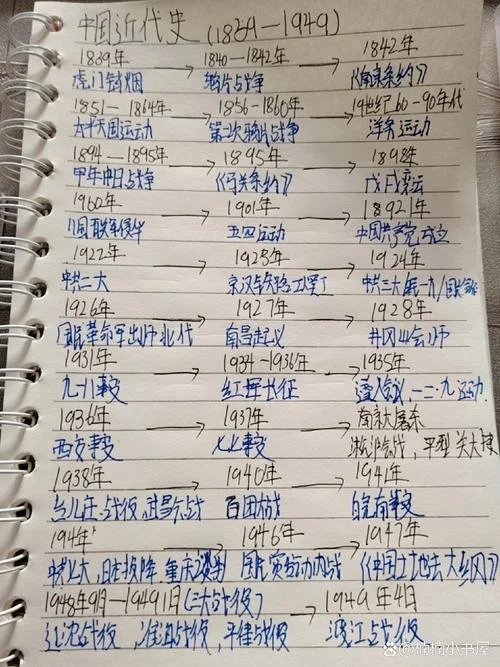 中国近代史(1839—1949)
1839年 → 1840—1842年 → 1842年
虎门销烟 鸦片战争 《南京条约》
1851—1864年 → 1856—1860年 → 19世纪60-90年代
太平天国运动 第二次鸦片战争 洋务运动
1894—1895年 → 1895年 → 1898年
甲午中日战争 《马关条约》 戊戌变法
1900年 → 1901年 → 18921年
八国联军侵华 五四运动 中国共产党成立
1922年 → 1923年 → 1924年
中共二大 京汉铁路工人罢工 中共三大 国共合作
1926年 → 1927年 → 1928年
国民革命军出师北伐 南昌起义 井冈山会师
1931年 → 1934—1936年 → 1935年
九一八事变 红军长征 遵义会议,一二·九运动
1936年 → 1937年 → 南京大屠杀
西安事变 七七事变 淞沪会战,平型关大捷
1938年 → 1940年 → 1941年
台儿庄战役,武昌会战 百团大战 皖南事变
194年 → 1946年 → 1947年
中共七大,日本投降,重庆谈判 国民党发动内战 《中国土地法大纲》
1948年9月—19491日(三大战役) → 1949年4日
辽沈战役,淮海战役,平津战役 渡江战役
@楠楠小书屋